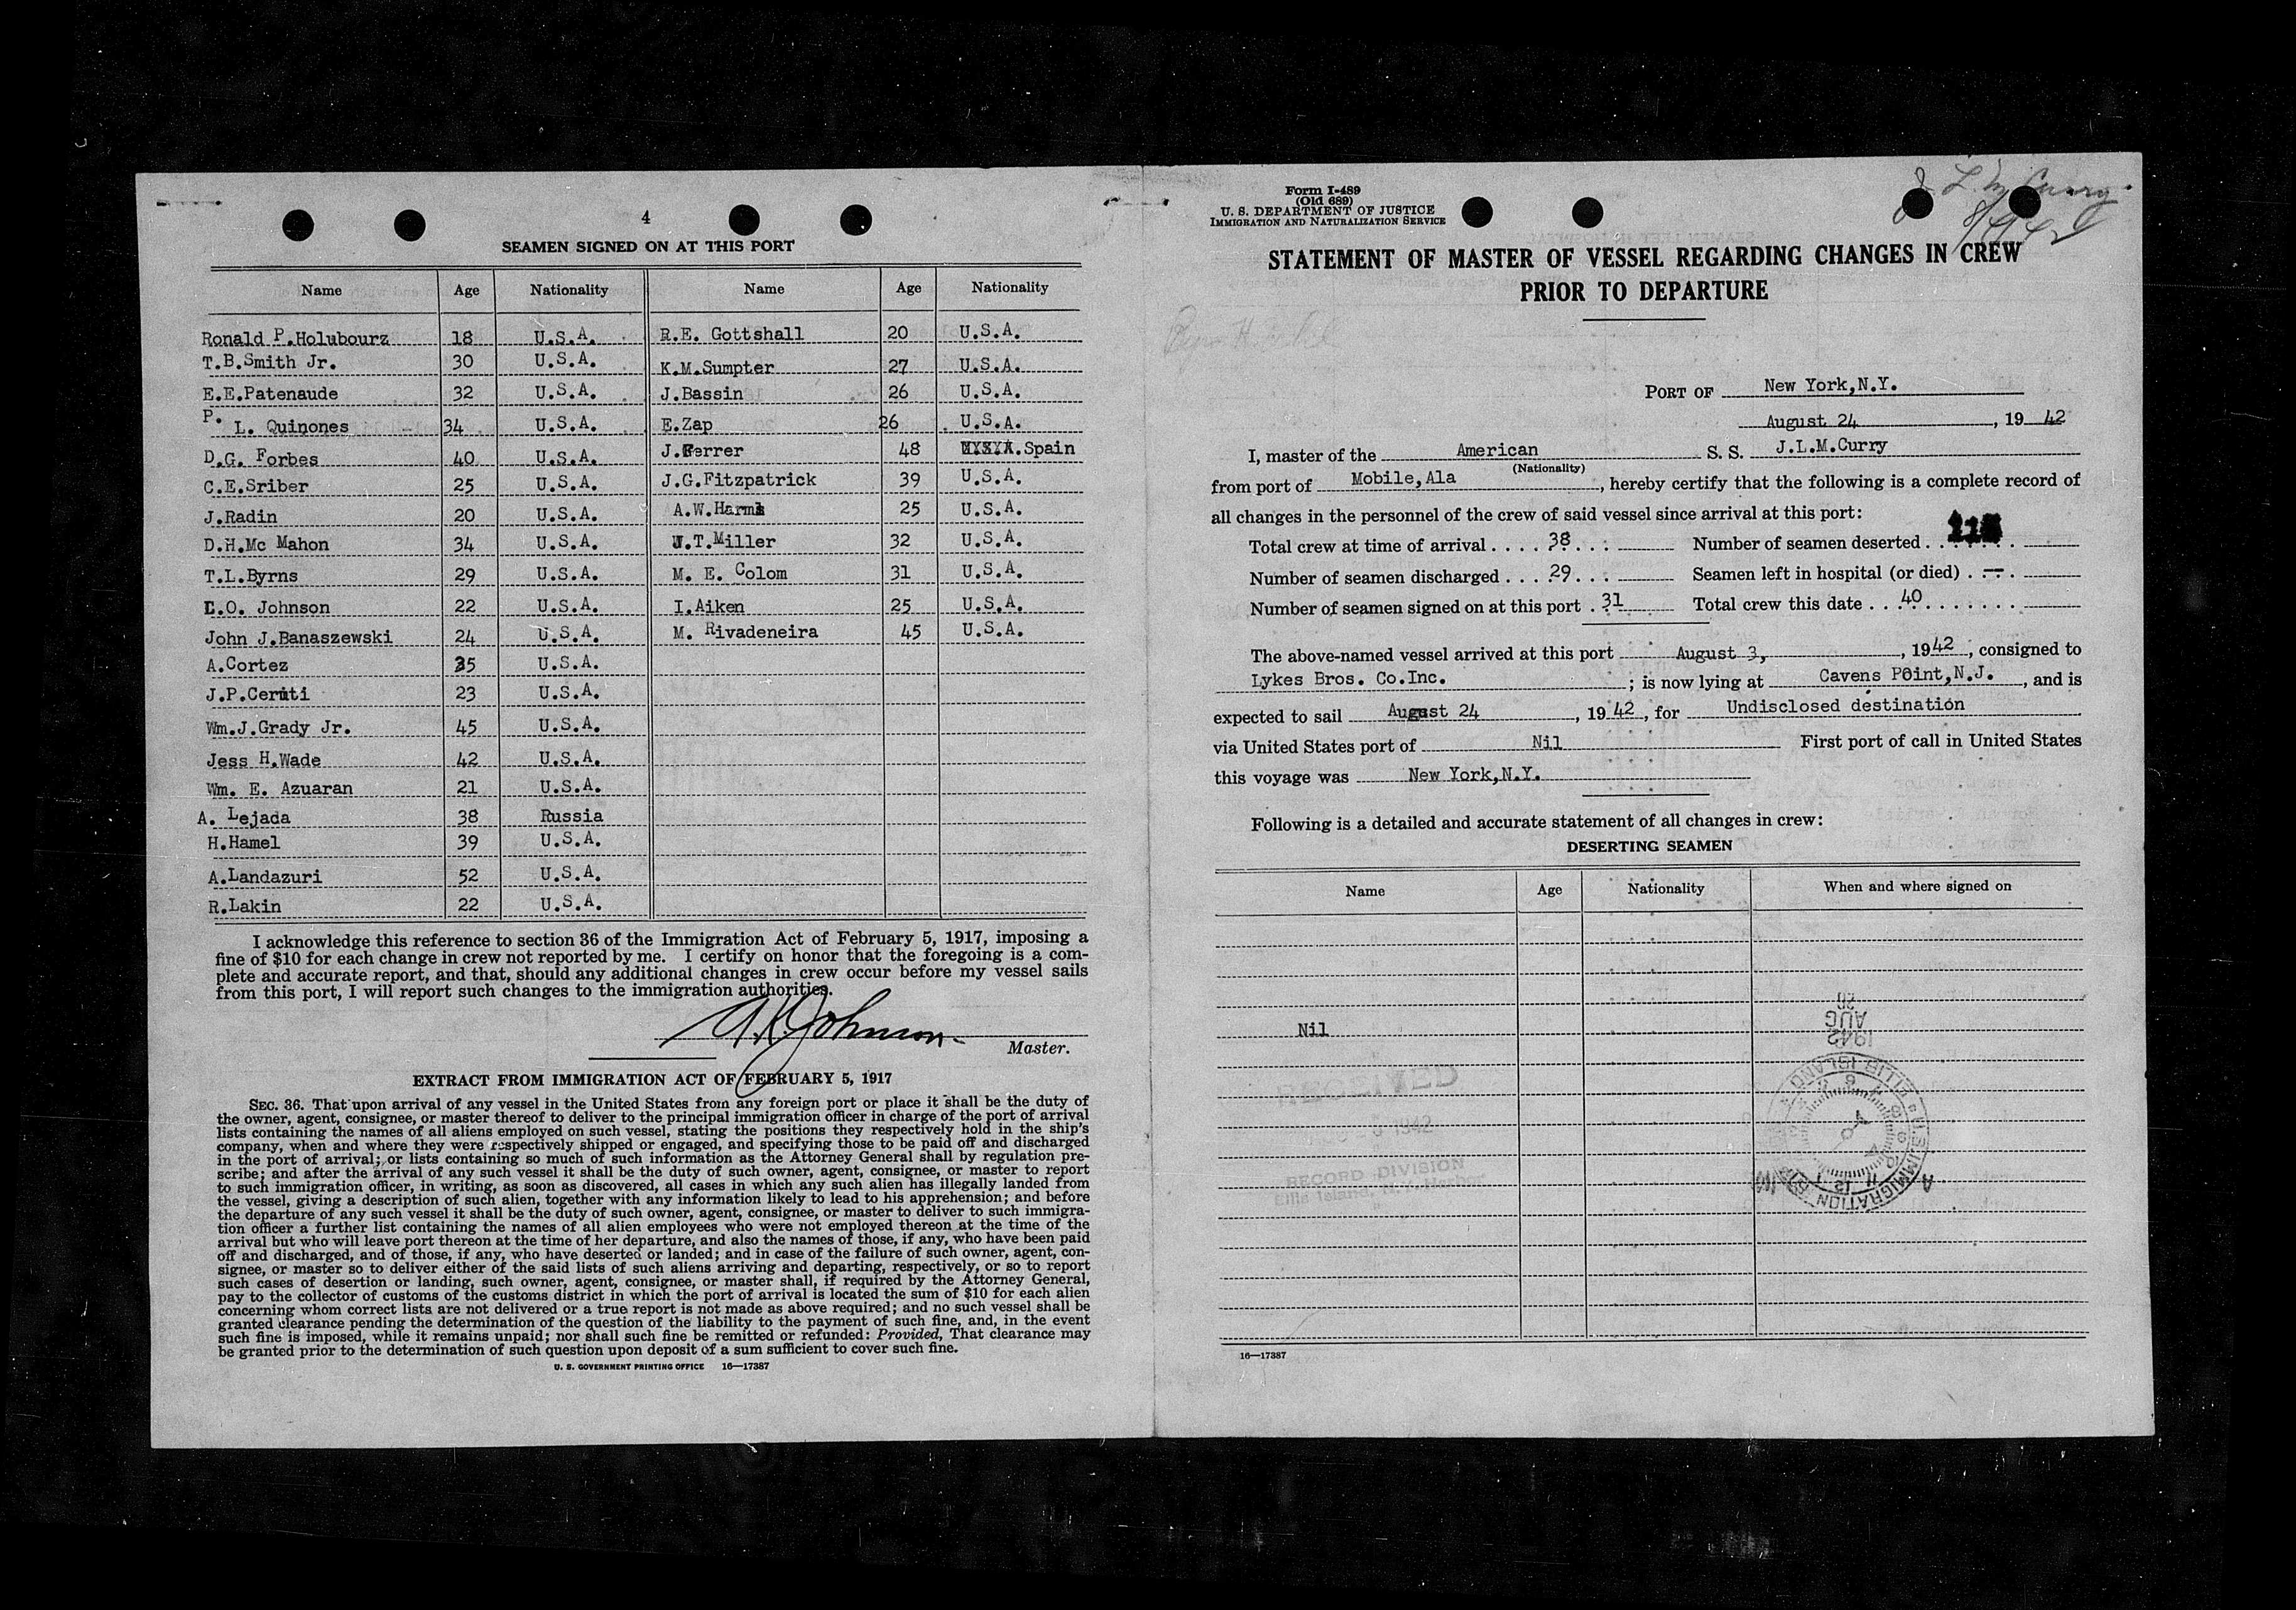 4
SEAMEN SIGNED ON AT THIS PORT
Name Age Nationality Name Age Nationality
Ronald P.Holubourz 18 U.S.A. R.E. Gottshall 20 U.S.A.
T.B.Smith Jr. 30 U.S.A. K.M.Sumpter 27 U.S.A.
E.E.Patenaude 32 U.S.A. J.Bassin 26 U.S.A.
P. L. Quinones 34 U.S.A. E.Zap 26 U.S.A.
D.G. Forbes 40 U.S.A. J.Ferrer 48 Spain
C.E.Sriber 25 U.S.A. J.G.Fitzpatrick 39 U.S.A.
J.Radin 20 U.S.A. A.W.Harms 25 U.S.A.
D.H.Mc Mahon 34 U.S.A. J.T.Miller 32 U.S.A.
T.L.Byrns 29 U.S.A. M. E. Colom 31 U.S.A.
E.O. Johnson 22 U.S.A. I.Aiken 25 U.S.A.
John J.Banaszewski 24 U.S.A. M. Rivadeneira 45 U.S.A.
A.Cortez 35 U.S.A.
J.P.Ceruti 23 U.S.A.
Wm.J.Grady Jr. 45 U.S.A.
Jess H.Wade 42 U.S.A.
Wm. E. Azuaran 21 U.S.A.
A. Lejada 38 Russia
H.Hamel 39 U.S.A.
A.Landazuri 52 U.S.A.
R.Lakin 22 U.S.A.
I acknowledge this reference to section 36 of the Immigration Act of February 5, 1917, imposing a
fine of $10 for each change in crew not reported by me. I certify on honor that the foregoing is a com-
plete and accurate report, and that, should any additional changes in crew occur before my vessel sails
from this port, I will report such changes to the immigration authorities.
A.K.Johnson
Master.
EXTRACT FROM IMMIGRATION ACT OF FEBRUARY 5, 1917
SEC. 36. That upon arrival of any vessel in the United States from any foreign port or place it shall be the duty of
the owner, agent, consignee, or master thereof to deliver to the principal immigration officer in charge of the port of arrival
lists containing the names of all aliens employed on such vessel, stating the positions they respectively hold in the ship's
company, when and where they were respectively shipped or engaged, and specifying those to be paid off and discharged
in the port of arrival; or lists containing so much of such information as the Attorney General shall by regulation pre-
scribe; and after the arrival of any such vessel it shall be the duty of such owner, agent, consignee, or master to report
to such immigration officer, in writing, as soon as discovered, all cases in which any such alien has illegally landed from
the vessel, giving a description of such alien, together with any information likely to lead to his apprehension; and before
the departure of any such vessel it shall be the duty of such owner, agent, consignee, or master to deliver to such immigra-
tion officer a further list containing the names of all alien employees who were not employed thereon at the time of the
arrival but who will leave port thereon at the time of her departure, and also the names of those, if any, who have been paid
off and discharged, and of those, if any, who have deserted or landed; and in case of the failure of such owner, agent, con-
signee, or master so to deliver either of the said lists of such aliens arriving and departing, respectively, or so to report
such cases of desertion or landing, such owner, agent, consignee, or master shall, if required by the Attorney General,
pay to the collector of customs of the customs district in which the port of arrival is located the sum of $10 for each alien
concerning whom correct lists are not delivered or a true report is not made as above required; and no such vessel shall be
granted clearance pending the determination of the question of the liability to the payment of such fine, and, in the event
such fine is imposed, while it remains unpaid; nor shall such fine be remitted or refunded: Provided, That clearance may
be granted prior to the determination of such question upon deposit of a sum sufficient to cover such fine.
U. S. GOVERNMENT PRINTING OFFICE 16—17387
J L M Curry
Form I-489
(Old 689)
U. S. DEPARTMENT OF JUSTICE
IMMIGRATION AND NATURALIZATION SERVICE
STATEMENT OF MASTER OF VESSEL REGARDING CHANGES IN CREW
PRIOR TO DEPARTURE
PORT OF New York,N.Y.
August 24, 19 42
I, master of the American S. S. J.L.M.Curry
(Nationality)
from port of Mobile,Ala, hereby certify that the following is a complete record of
all changes in the personnel of the crew of said vessel since arrival at this port:
Total crew at time of arrival . . . . 38 Number of seamen deserted . . .
Number of seamen discharged . . . . 29 Seamen left in hospital (or died) . —
Number of seamen signed on at this port . 31 Total crew this date . . . 40
The above-named vessel arrived at this port August 3, , 1942, consigned to
Lykes Bros. Co.Inc. ; is now lying at Cavens Point,N.J. , and is
expected to sail August 24, 19 42, for Undisclosed destination
via United States port of Nil First port of call in United States
this voyage was New York,N.Y.
Following is a detailed and accurate statement of all changes in crew:
DESERTING SEAMEN
Name Age Nationality When and where signed on
Nil
1942
AUG
26
ELLIS ISLAND
IMMIGRATION
RECEIVED
1942
RECORD DIVISION
Ellis Island, N.Y. Harbor
16—17387